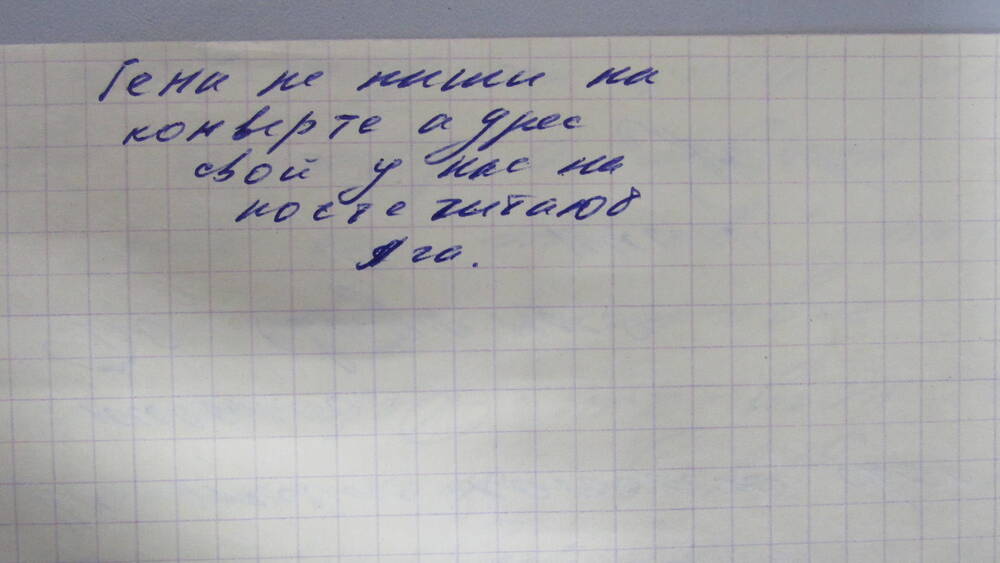 Гена не пиши на
конверте адрес
свой у нас на
посте читают